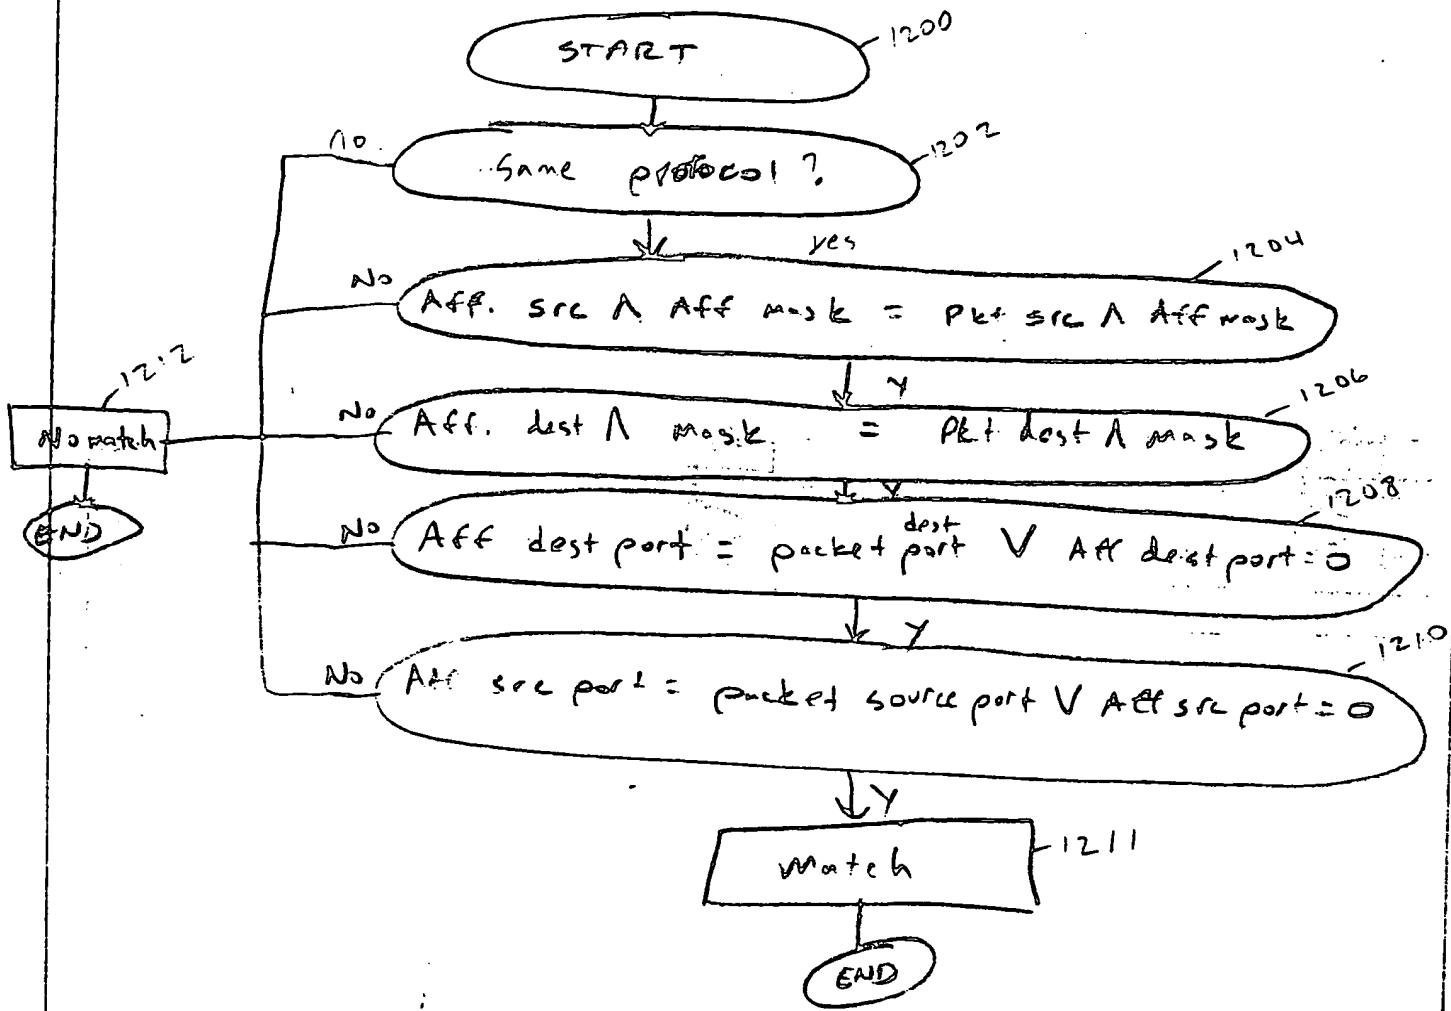 START
1200
no.
Same protocol?
1202
yes
1204
No
Aff. src Λ Aff mask = Pkt src Λ Aff mask
1212
Y
1206
No match
No
Aff. dest Λ mask = Pkt dest Λ mask
Y
1208
END
No
Aff dest port = packet dest port V Aff dest port = 0
Y
1210
No
Aff src port = packet source port V Aff src port = 0
Y
Match
1211
END